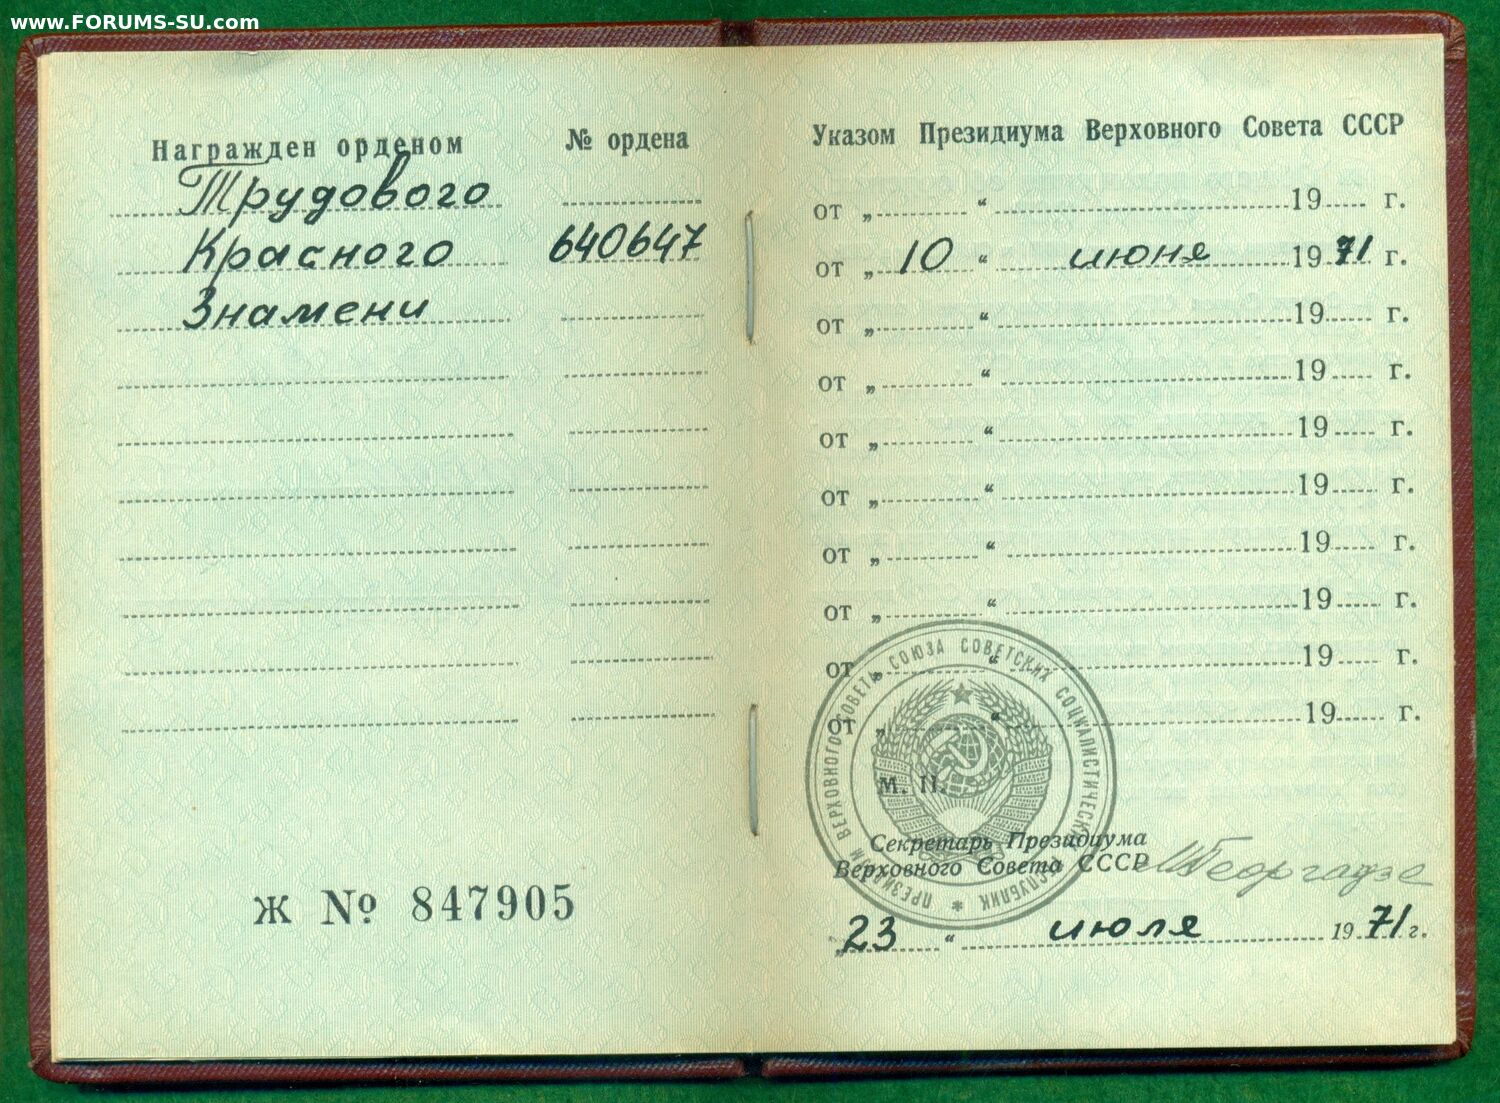 www.FORUMS-SU.com
Награжден орденом № ордена
Трудового
Красного 640647
Знамени
Ж № 847905
Указом Президиума Верховного Совета СССР
от „ “ 19 г.
от „ 10 “ июня 19 71 г.
от „ “ 19 г.
от „ “ 19 г.
от „ “ 19 г.
от „ “ 19 г.
от „ “ 19 г.
от „ “ 19 г.
от „ “ 19 г.
от „ “ 19 г.
ПРЕЗИДИУМ ВЕРХОВНОГО СОВЕТА СОЮЗА СОВЕТСКИХ СОЦИАЛИСТИЧЕСКИХ РЕСПУБЛИК
М. П.
Секретарь Президиума
Верховного Совета СССР МГеоргадзе
„ 23 “ июля 19 71 г.